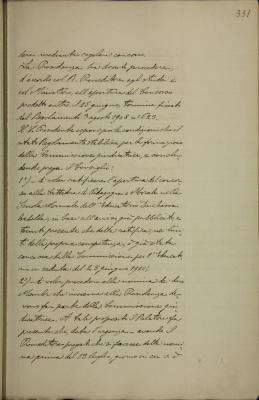 331
sersi mediante regolare concorso.
La Presidenza ha dovuto procedere,
d'accordo col R. Provveditore agli studi e
col Ministero, all'apertura del Concorso
predetto entro il 25 giugno, termine fissato
dal Regolamento 3 agosto 1908 n° 623.
Il V. Presidente espone poi le condizioni che il
detto Regolamento stabilisce per la formazione
della Commissione giudicatrice, e conclu-
dendo prega il Consiglio:
1°) di voler ratificare l'apertura del concor-
so alla Cattedra di Pedagogia e Morale nella
Scuola Normale dell'Educatorio
in base all'avviso già pubblicato, e
tenuto presente che della ratifica, nei limi-
ti della propria competenza, è già stata
concessa dalla Commissione per l'Educato-
rio in seduta del dì 2 giugno 1911;
2°) di voler procedere alla nomina di due
Membri che insieme alla Presidenza de-
vono far parte della Commissione giu-
dicatrice. A tale proposito il Relatore fa
presente che, data l'urgenza avendo il
Provveditore pregato che si facesse della nomi-
na prima del 13 luglio, giorno in cui